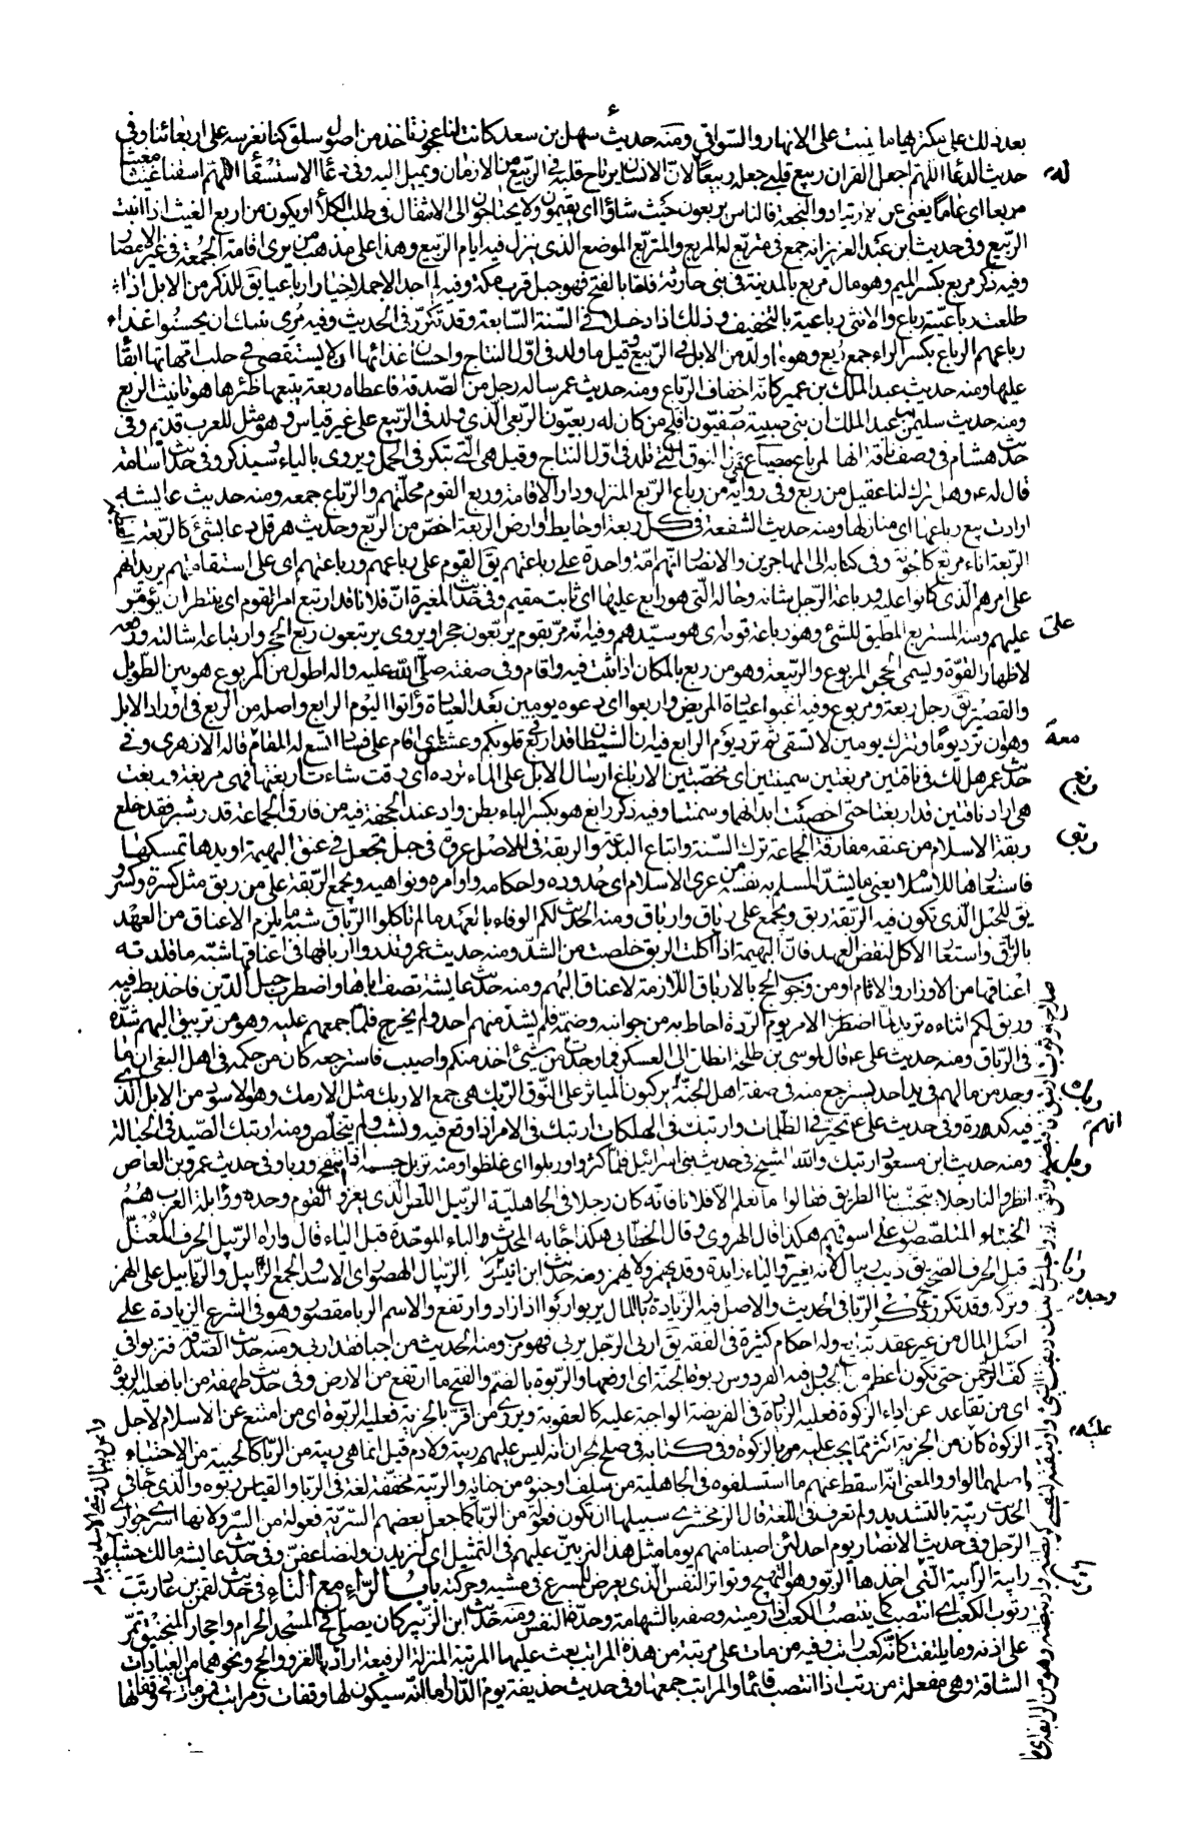 بعد ذلك على بكرها ما ينبت على الانهار والسواقي ومنه حديث سهل بن سعد كانت لنا عجوز تاخذ من اصول سلق كنا نغرسه على اربعائنا وفي
حديث الدعا اللهم اجعل القران ربيع قلبي جعله ربيعا لان الانسان يرتاح قلبه في الربيع من الازمان ويميل اليه وفي دعا الاستسقا اللهم اسقنا غيثا مغيثا
مربعا اي عاما يغني عن الارتياد والنجعة فالناس يربعون حيث شاؤا اي يقيمون ولا يحتاجون الى الانتقال في طلب الكلأ او يكون من اربع الغيث اذا انبت
الربيع وفي حديث ابن عبد العزيز انه جمع في متربع له المربع والمتربع الموضع الذي ينزل فيه ايام الربيع وهذا على مذهب من يرى اقامة الجمعة في غير الامصار
وفيه ذكر مربع بكسر الميم وهو مال مربع بالمدينة في بني حارثة فاما بالفتح فهو جبل قرب مكة وفيه لم اجد الا جملا خيارا رباعيا يق للذكر من الابل اذا
طلعت رباعيته رباع والانثى رباعية بالتخفيف وذلك اذا دخلا في السنة السابعة وقد تكرر في الحديث وفيه مري بنيك ان يحسنوا غذاء
رباعهم الرباع بكسر الراء جمع ربع وهو ما ولد من الابل في الربيع وقيل ما ولد في اول النتاج واحسان غذائها ان لا يستقصى في حلب امهاتها ابقا
عليها ومنه حديث عبد الملك بن عمير كانه اخفاف الرباع ومنه حديث عمر ساله رجل من الصدقة فاعطاه ربعة يتبعها ظئرها هو تانيث الربع
ومنه حديث سليمن بن عبد الملك ان بني صبية صيفيون افلح من كان له ربعيون الربعي الذي ولد في الربيع على غير قياس وهو مثل للعرب قديم وفي
حديث هشام في وصف ناقة انها لمرباع مسياع هي من النوق التي تلد في اول النتاج وقيل هي التي تبكر في الحمل ويروى بالياء وسيذكر وفي حديث اسامة
قال له ع وهل ترك لنا عقيل من ربع وفي رواية من رباع الربع المنزل ودار الاقامة وربع القوم محلتهم والرباع جمعه ومنه حديث عايشه
ارادت بيع رباعها اي منازلها ومنه حديث الشفعة في كل ربعة او حايط او ارض الربعة اخص من الربع وحديث هرقل دعا بشئ كالربعة
الربعة اناء مربع كالجونة وفي كتابه الى المهاجرين والانصار انهم امة واحدة على رباعتهم يق القوم على رباعهم ورباعتهم اي على استقامتهم يريد انهم
على امرهم الذي كانوا عليه ورباعة الرجل شانه وحاله التي هو رابع عليها اي ثابت مقيم وفي حديث المغيرة ان فلانا قد ارتبع امر القوم اي ينتظر ان يؤمر
عليهم ومنه المستربع المطيق للشئ وهو رباعة قومه اي هو سيدهم وفيه انه مر بقوم يربعون حجرا ويروى يرتبعون ربع الحجر وارتباعه اشالته ورفعه
لاظهار القوة ويسمى الحجر المربوع والربيعة وهو من ربع بالمكان اذا ثبت فيه واقام وفي صفته صلى الله عليه واله اطول من المربوع هو بين الطويل
والقصير يق رجل ربعة ومربوع وفيه اغبوا عيادة المريض واربعوا اي دعوه يومين بعد العيادة وأتوا اليوم الرابع واصله من الربع في اوراد الابل
وهو ان ترد يوما وتترك يومين لا تسقى ثم ترد يوم الرابع فيه ان الشيطان قد اربع في قلوبكم وعشش اي اقام على فساد اتسع له المقام قاله الازهري وفي
حديث عمر هل لك في ناقتين مربغتين سمينتين اي مخصبتين الارباغ ارسال الابل على الماء ترده اي وقت شاءت اربغتها فهي مربغة وربغت
هي اراد ناقتين قد اربغتا حتى اخصبت ابدانهما وسمنتا وفيه ذكر رابغ هو بكسر الباء بطن واد عند الجحفة فيه من فارق الجماعة قدر شبر فقد خلع
ربقة الاسلام من عنقه مفارقة الجماعة ترك السنة واتباع البدعة والربقة في الاصل عروة في حبل تجعل في عنق البهيمة او يدها تمسكها
فاستعارها للاسلام يعني ما يشد المسلم به نفسه من عرى الاسلام اي حدوده واحكامه واوامره ونواهيه وتجمع الربقة على ربق مثل كسرة وكسر و
يق للحبل الذي تكون فيه الربقة ربق وتجمع على رباق وارباق ومنه الحديث لكم الوفاء بالعهد ما لم تاكلوا الرباق شبه ما يلزم الاعناق من العهد
بالرباق واستعار الاكل لنقض العهد فان البهيمة اذا اكلت الربق خلصت من الشد ومنه حديث عمر وتذروا ارباقها في اعناقها شبه ما قلدته
اعناقها من الاوزار والاثام او من وجوب الحج بالارباق اللازمة لاعناق البهم ومنه حديث عايشة تصف اباها واضطرب حبل الدين فاخذ بطرفيه
وربق لكم اثناءه تريد لما اضطرب الامر يوم الردة احاط به من جوانبه وضمه فلم يشذ منهم احد ولم يخرج فلما جمعهم عليه وهو من تربيق البهم شده
في الرباق ومنه حديث علي ع قال لموسى بن طلحة انطلق الى العسكر فما وجدت من شئ اخذ منكم واصيب فاسترجعه كان من حكمه في اهل البغي ان ما
وجد من مالهم في يد احد يسترجع منه في صفة اهل الجنة يركبون المياثر على النوق الربك هي جمع الاربك مثل الارمك وهو الاسود من الابل الذي
فيه كدورة وفي حديث علي ع تحير في الظلمات وارتبك في الهلكات ارتبك في الامر اذا وقع فيه ونشب ولم يتخلص ومنه ارتبك الصيد في الحبالة
ومنه حديث ابن مسعود ارتبك والله الشيخ في حديث بني اسرائيل فلما كثروا وربلوا اي غلظوا ومنه تربل جسمه اذا انتفخ وربا وفي حديث عمرو بن العاص
انظروا لنا رجلا يتجنب بنا الطريق فقالوا ما نعلم الا فلانا فانه كان ربيلا في الجاهلية الربيل اللص الذي يغزو القوم وحده وربابلة العرب هم
الخبثاء المتلصصون على اسوقهم هكذا قال الهروي وقال الخطابي هكذا جاء به المحدث والباء الموحدة قبل الياء قال واراه الريبل الحرف المعتل
قبل الحرف الصحيح يق ذيب ريبال لانه يغير والياء زايدة وقد يهمز ولا يهمز ومنه حديث ابن انيس الرئبال الهصور اي الاسد والجمع الرابيل والريابيل على الهمز
وتركه وقد تكرر ذكر الربا في الحديث والاصل فيه الزيادة ربا المال يربو اربوا اذا زاد وارتفع والاسم الربا مقصور وهو في الشرع الزيادة على
اصل المال من غير عقد تبايع وله احكام كثيرة في الفقه يق اربى الرجل يربي فهو مرب ومنه الحديث من اجبا فقد اربى ومنه حديث الصدقة فتربو في
كف الرحمن حتى تكون اعظم من الجبل وفيه الفردوس ربوة الجنة اي ارفعها والربوة بالضم والفتح ما ارتفع من الارض وفي حديث طهفة من ابى فعليه الربوة
اي من تقاعد عن اداء الزكوة فعليه الزيادة في الفريضة الواجبة عليه كالعقوبة ويروى من اقر بالجزية فعليه الربوة اي من امتنع عن الاسلام لاجل
الزكوة كان من الجزية اكثر مما يجب عليه من الزكوة وفي كتابه في صلح نجران انه ليس عليهم ربية ولا دم قيل انما هي ربية من الربا كالحبية من الاحتباء
واصلهما الواو والمعنى انه اسقط عنهم ما استسلفوه في الجاهلية من سلف او جنوه من جناية والربية مخففة لغة في الربا والقياس ربوه والذي جاء في
الحديث ربية بالتشديد ولم تعرف في اللغة قال الزمخشري سبيلها ان تكون فعولة من الربا كما جعل بعضهم السرية فعولة من السرو لانها اسرى جواري
الرجل وفي حديث الانصار يوم احد لئن اصبنا منهم يوما مثل هذا لنربين عليهم في التمثيل اي لنزيدن ولنضاعفن وفي حديث عايشة مالك حشيا
رابية الرابية التي اخذها الربو وهو النهيج وتواتر النفس الذي يعرض للمسرع في مشيه وحركته باب الراء مع التاء في حديث لقمن بن عاد رتب
رتوب الكعب اي انتصب كما ينتصب الكعب اذا رميته وصفه بالشهامة وحدة النفس ومنه حديث ابن الزبير كان يصلي في المسجد الحرام واحجار المنجنيق تمر
على اذنه وما يلتفت كانه كعب راتب وفيه من مات على مرتبة من هذه المراتب بعث عليها المرتبة المنزلة الرفيعة اراد بها الغزو والحج ونحوهما من العبادات
الشاقة وهي مفعلة من رتب اذا انتصب قائما والمراتب جمعها وفي حديث حذيفة يوم الدار اما انه سيكون لها وقفات ومراتب فمن مات في وقفاتها
له
على
معه
ربغ
ربق
ربك
انهم
ربل
ربا
وحده
عليه
رتب